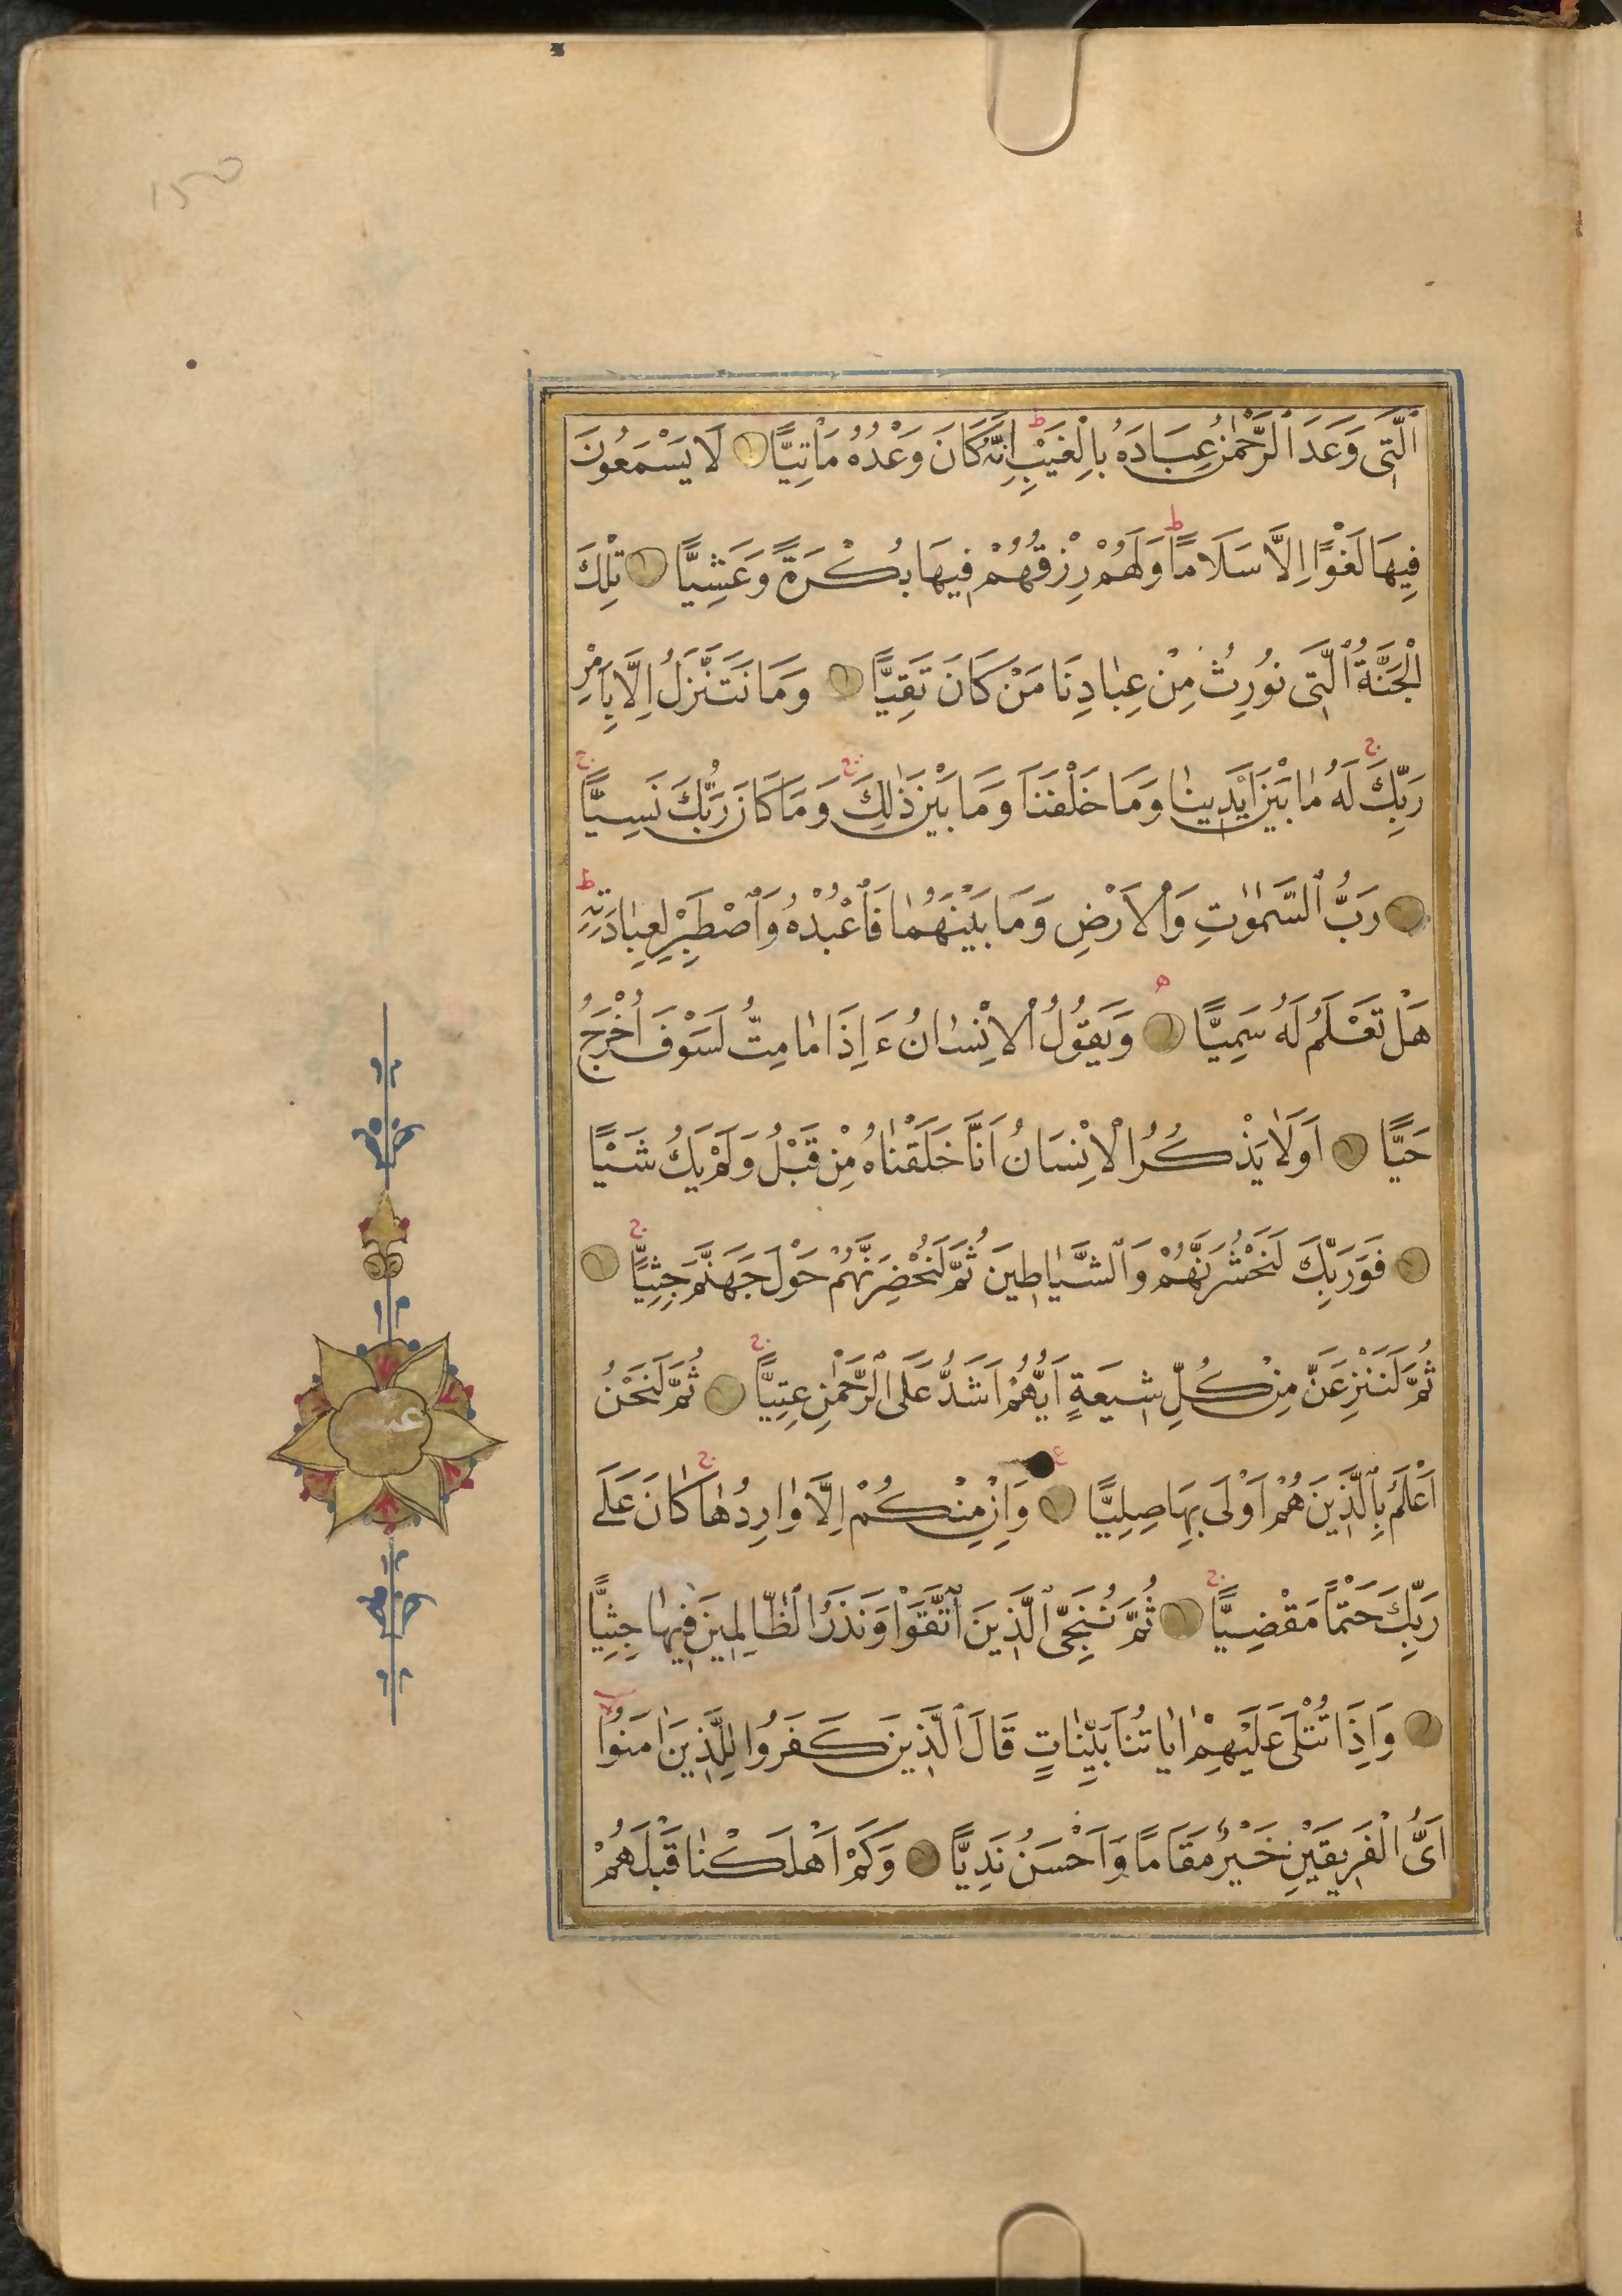 ١٥٥
اَلَّتِى وَعَدَ الرَّحْمٰنُ عِبَادَهُ بِالْغَيْبِ اِنَّهُ كَانَ وَعْدُهُ مَأْتِيًّا لَا يَسْمَعُونَ
فِيهَا لَغْوًا اِلَّا سَلَامًا وَلَهُمْ رِزْقُهُمْ فِيهَا بُكْرَةً وَعَشِيًّا تِلْكَ
الْجَنَّةُ الَّتِى نُورِثُ مِنْ عِبَادِنَا مَنْ كَانَ تَقِيًّا وَمَا نَتَنَزَّلُ اِلَّا بِاَمْرِ
رَبِّكَ لَهُ مَا بَيْنَ اَيْدِينَا وَمَا خَلْفَنَا وَمَا بَيْنَ ذٰلِكَ وَمَا كَانَ رَبُّكَ نَسِيًّا
رَبُّ السَّمٰوٰتِ وَالْاَرْضِ وَمَا بَيْنَهُمَا فَاعْبُدْهُ وَاصْطَبِرْ لِعِبَادَتِهِ
هَلْ تَعْلَمُ لَهُ سَمِيًّا وَيَقُولُ الْاِنْسَانُ ءَاِذَا مَا مِتُّ لَسَوْفَ اُخْرَجُ
حَيًّا اَوَلَا يَذْكُرُ الْاِنْسَانُ اَنَّا خَلَقْنَاهُ مِنْ قَبْلُ وَلَمْ يَكُ شَيْـًٔا
فَوَرَبِّكَ لَنَحْشُرَنَّهُمْ وَالشَّيَاطِينَ ثُمَّ لَنُحْضِرَنَّهُمْ حَوْلَ جَهَنَّمَ جِثِيًّا
ثُمَّ لَنَنْزِعَنَّ مِنْ كُلِّ شِيعَةٍ اَيُّهُمْ اَشَدُّ عَلَى الرَّحْمٰنِ عِتِيًّا ثُمَّ لَنَحْنُ
اَعْلَمُ بِالَّذِينَ هُمْ اَوْلَى بِهَا صِلِيًّا وَاِنْ مِنْكُمْ اِلَّا وَارِدُهَا كَانَ عَلَى
رَبِّكَ حَتْمًا مَقْضِيًّا ثُمَّ نُنَجِّى الَّذِينَ اتَّقَوْا وَنَذَرُ الظَّالِمِينَ فِيهَا جِثِيًّا
وَاِذَا تُتْلَى عَلَيْهِمْ اٰيَاتُنَا بَيِّنَاتٍ قَالَ الَّذِينَ كَفَرُوا لِلَّذِينَ اٰمَنُوا
اَىُّ الْفَرِيقَيْنِ خَيْرٌ مَقَامًا وَاَحْسَنُ نَدِيًّا وَكَمْ اَهْلَكْنَا قَبْلَهُمْ